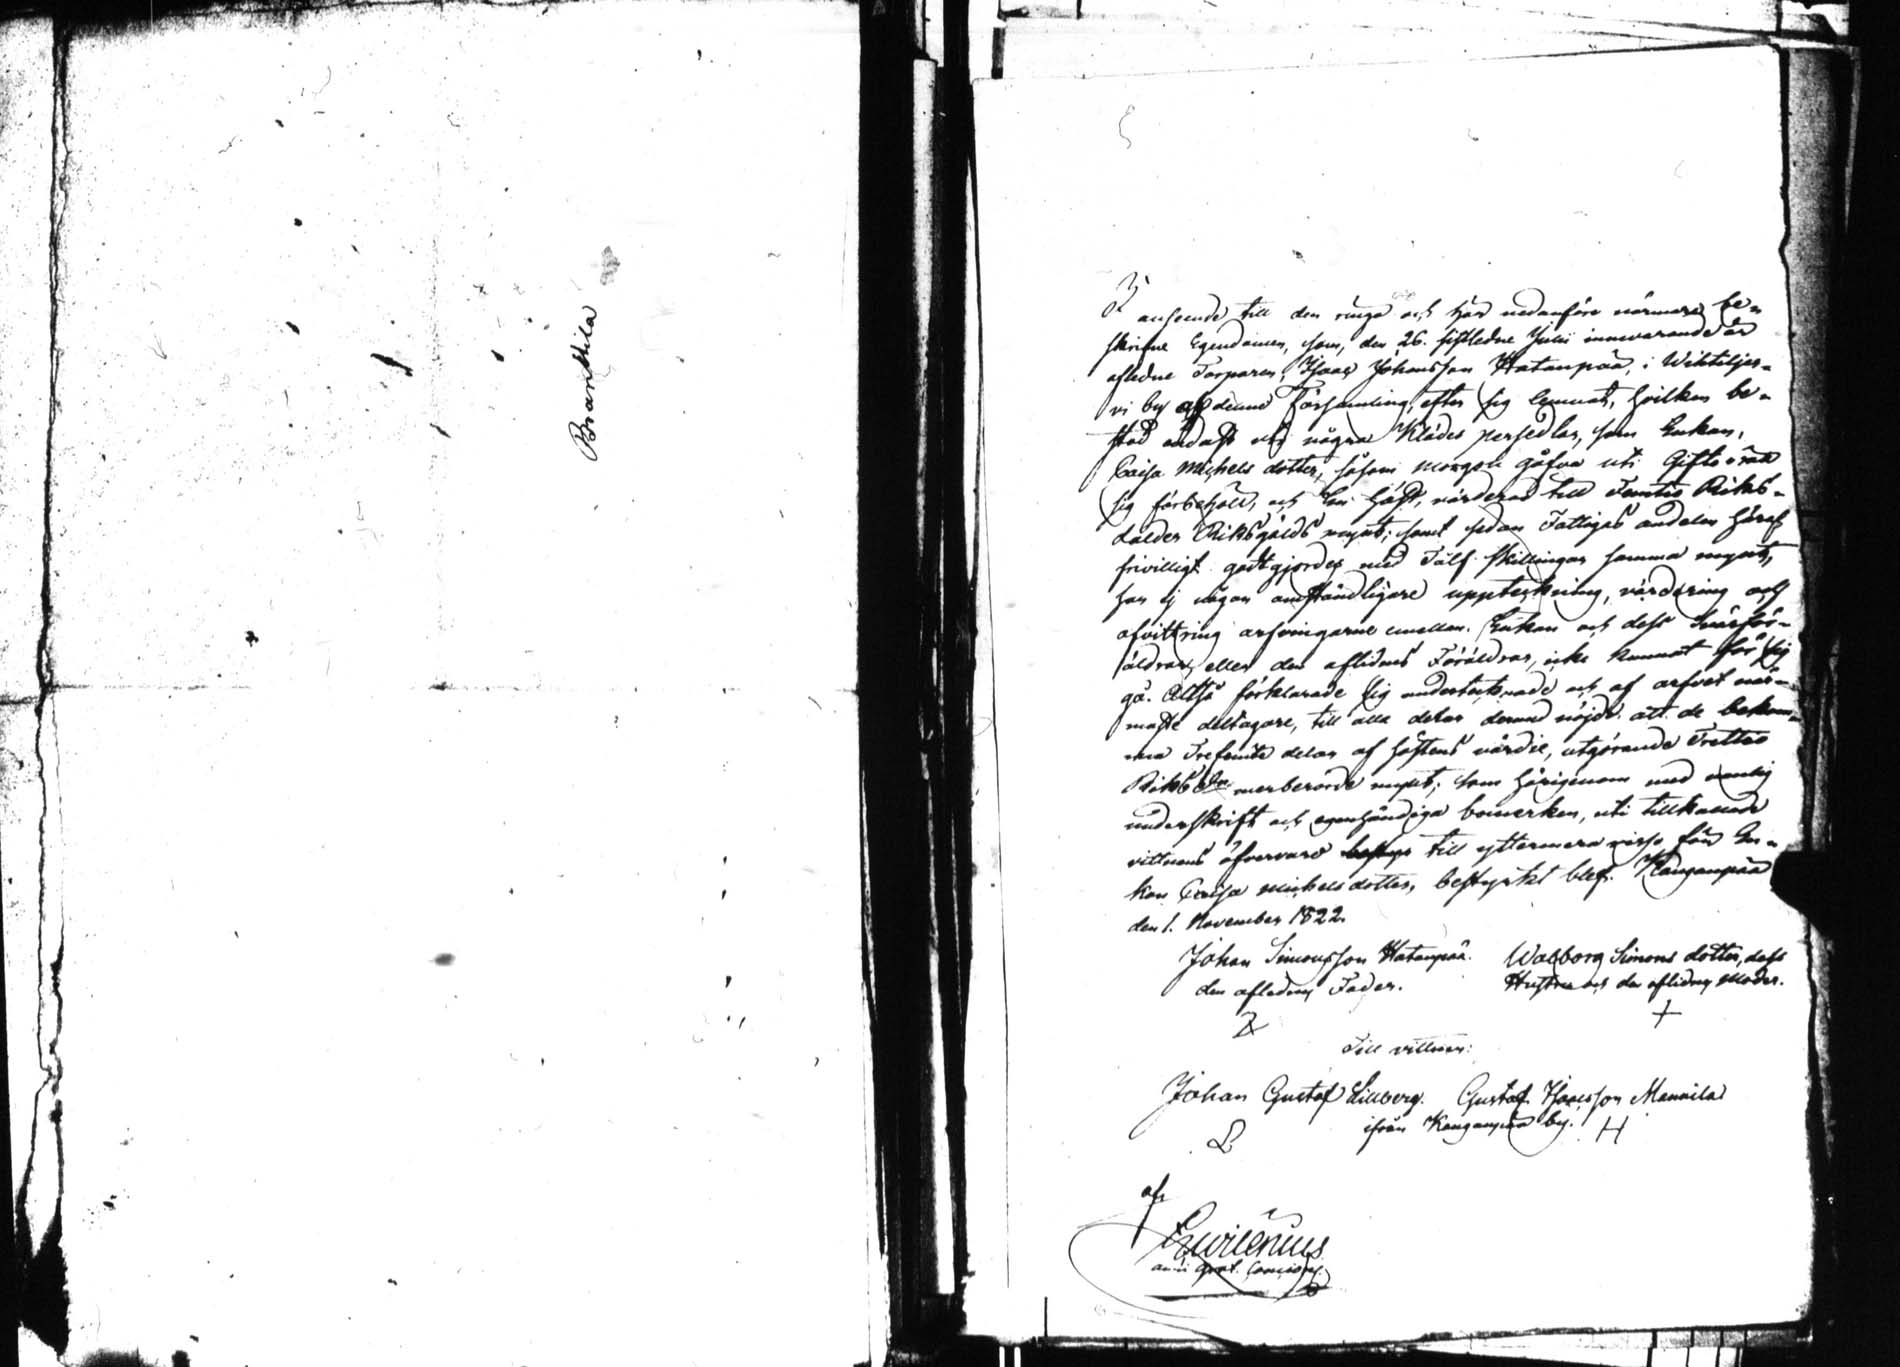 Branttila
I anseende till den ringa och här nedanföre närmare be-
skrifne Egendomen, som, den 26. sistledne Julii innevarande år
aflidne Torparen, Isaac Johansson Hatanpää, i Wihteljer-
vi by af denne Församling, efter sig lemnat, hvilken be-
stod endast uti några Klädes persedlar, som Enkan,
Caisa Michels dotter, såsom morgon gåfva uti Gifto rätt
sig förbehöll, och En häst, värderad till Femtio Riks-
daler Riksgälds mynt; samt sedan Fattigas andelen häraf
frivilligt godtgjordes med Tolf skillingar samma mynt,
har ej någon omständligare uppteckning, värdering och
afvittring arfvingarne emellan. Enkan och dess svärför-
äldrar, eller den aflidnes Föräldrar, icke kunnat för sig
gå. Altså förklarade sig undertecknade och af arfvet när-
maste deltagare, till alla delar dermed nöjde att de bekom-
ma Trefemte delar af hästens värde, utgörande Trettio
Riksd:r merberörde mynt; som härigenom med namnlig
underskrift och egenhändiga bomerken, uti tillkallade
vittnens öfvervaro till yttermera visso för En-
kan Caisa Michelsdotter, bestyrkt blef. Kangampää
den 1. November 1822.
Johan Simonsson Hatanpää. Walborg Simons dotter, dess
den aflednes Fader. Hustru och den aflidnes Moder.
+
Till vittnen:
Johan Gustaf Lillberg. Gustaf Isacsson Mannila
ifrån Kangampää by. H
af